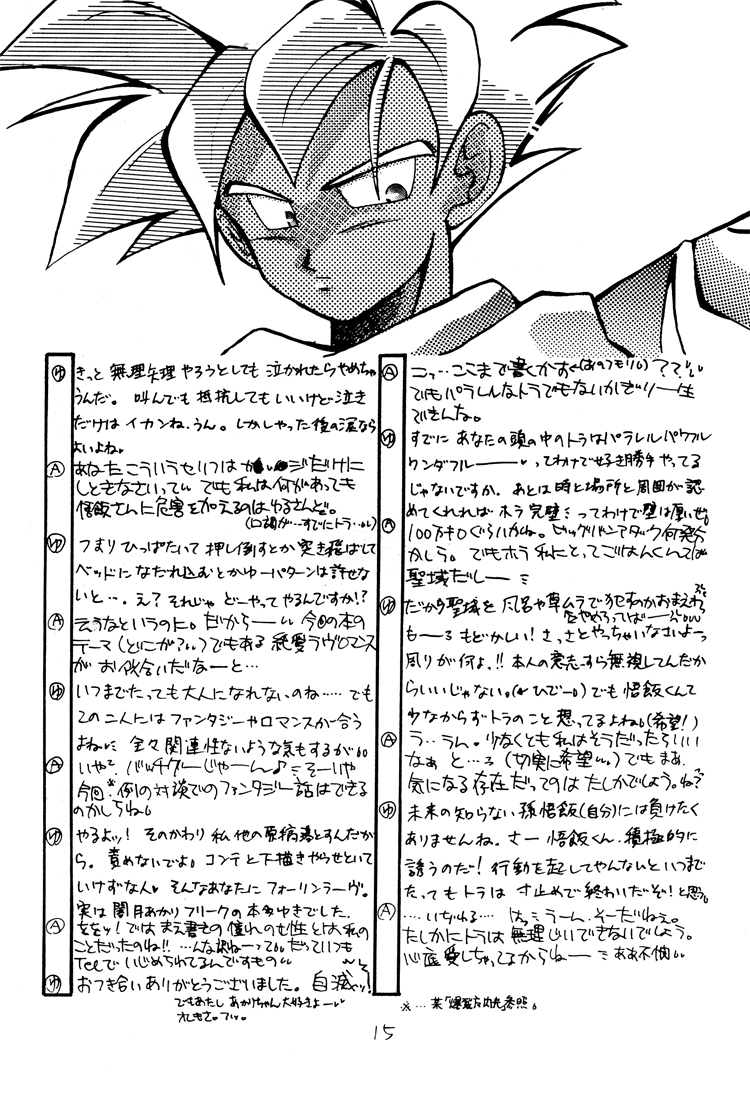 Ⓐ コッ…ここまで書くかすぐ(あのつもりも)??
でもパラレルなトラでもないかぎり一生
できんな。
ゆ すでに あなたの頭の中のトラはパラレルパワフル
ワンダフルーーって わけで好き勝手やってる
じゃないですか。あとは時と場所と周囲が認
めてくれれば ホラ 完璧ミってわけで壁は厚いぜ。
Ⓐ 100万キロぐらいかね。ビッグバンアタック何発分
かしら。でもホラ 私にとってごはんくんては
聖域だしーミ
ゆ だから聖域を 風呂や草ムラで犯すのかおまえわっ
もーろもどかしい!さっさとやっちゃいなさいよーっ
周りが何よ!!本人の意志すら無視してんだか
らいいじゃない。(ひでー。)でも悟飯くんて
少なからずトラのこと 想ってるよね。(希望!)
Ⓐ う…うん。少なくとも私はそうだったらいい
なぁ と…ろ(切実に希望)でもまあ、
気になる存在だってのは たしかでしょう。ね?
ゆ 未来の知らない 孫悟飯(自分)には負けたく
ありませんね。さー 悟飯くん、積極的に
誘うのだ!行動を起してやんないといつまで
たってもトラは 寸止めで終わりだぞ!と思う。
Ⓐ ……いぢわる… けっミうーん、そーだねぇ。
たしかにトラは無理じいできないでしょう。
心底愛しちゃってるからねーミああ不憫
ゆ きっと無理矢理 やろうとしても 泣かれたらやめちゃ
うんだ。 叫んでも 抵抗してもいいけど泣き
だけは イカンね、うん。しかしやった後の涙なら
よいよね。
Ⓐ あなたこういうせりふは
しときなさいって でも私は何があっても
悟飯さんに危害を加えるのはゆるさんど。
(口調が…すでにトラ…)
ゆ つまり ひっぱたいて 押し倒すとか 突き飛ばして
ベッドに なだれ込むとかゆーパターンは許せな
いと…。え?それじゃ どーやってやるんですか!?
Ⓐ 言うなというのに。だからーい今回の本の
テーマ(どこが?)でもある 純愛ラヴロマンス
が お似合いだなーと…
ゆ いつまでたっても大人になれないのね…… でも
この二人には ファンタジーやロマンスが合う
よねミ 全々関連性ないような気もするが。
Ⓐ いやぁ バッチグーじゃーん♪ミそーいや
今回※例の対談でのファンタジー話はできる
のかしらね。
ゆ やるよッ!そのかわり私他の原稿落とすんだか
ら。責めないでよ。コンテと下描きやらせといて
いけずな人 そんなあなたに フォーリンラーヴ。
実は 闇月あかりフリークの本多ゆきでした。
Ⓐ ををッ!では まえ書きの憧れの女性とは 私の
ことだったのね!!…んなわきねーって だっていつも
Telで いじめられてるんですもの
ゆ おつき合いありがとうございました。自滅
でもあたし あかりちゃん大好きよー
オレもさ。
※…某「爆発」参照。
15